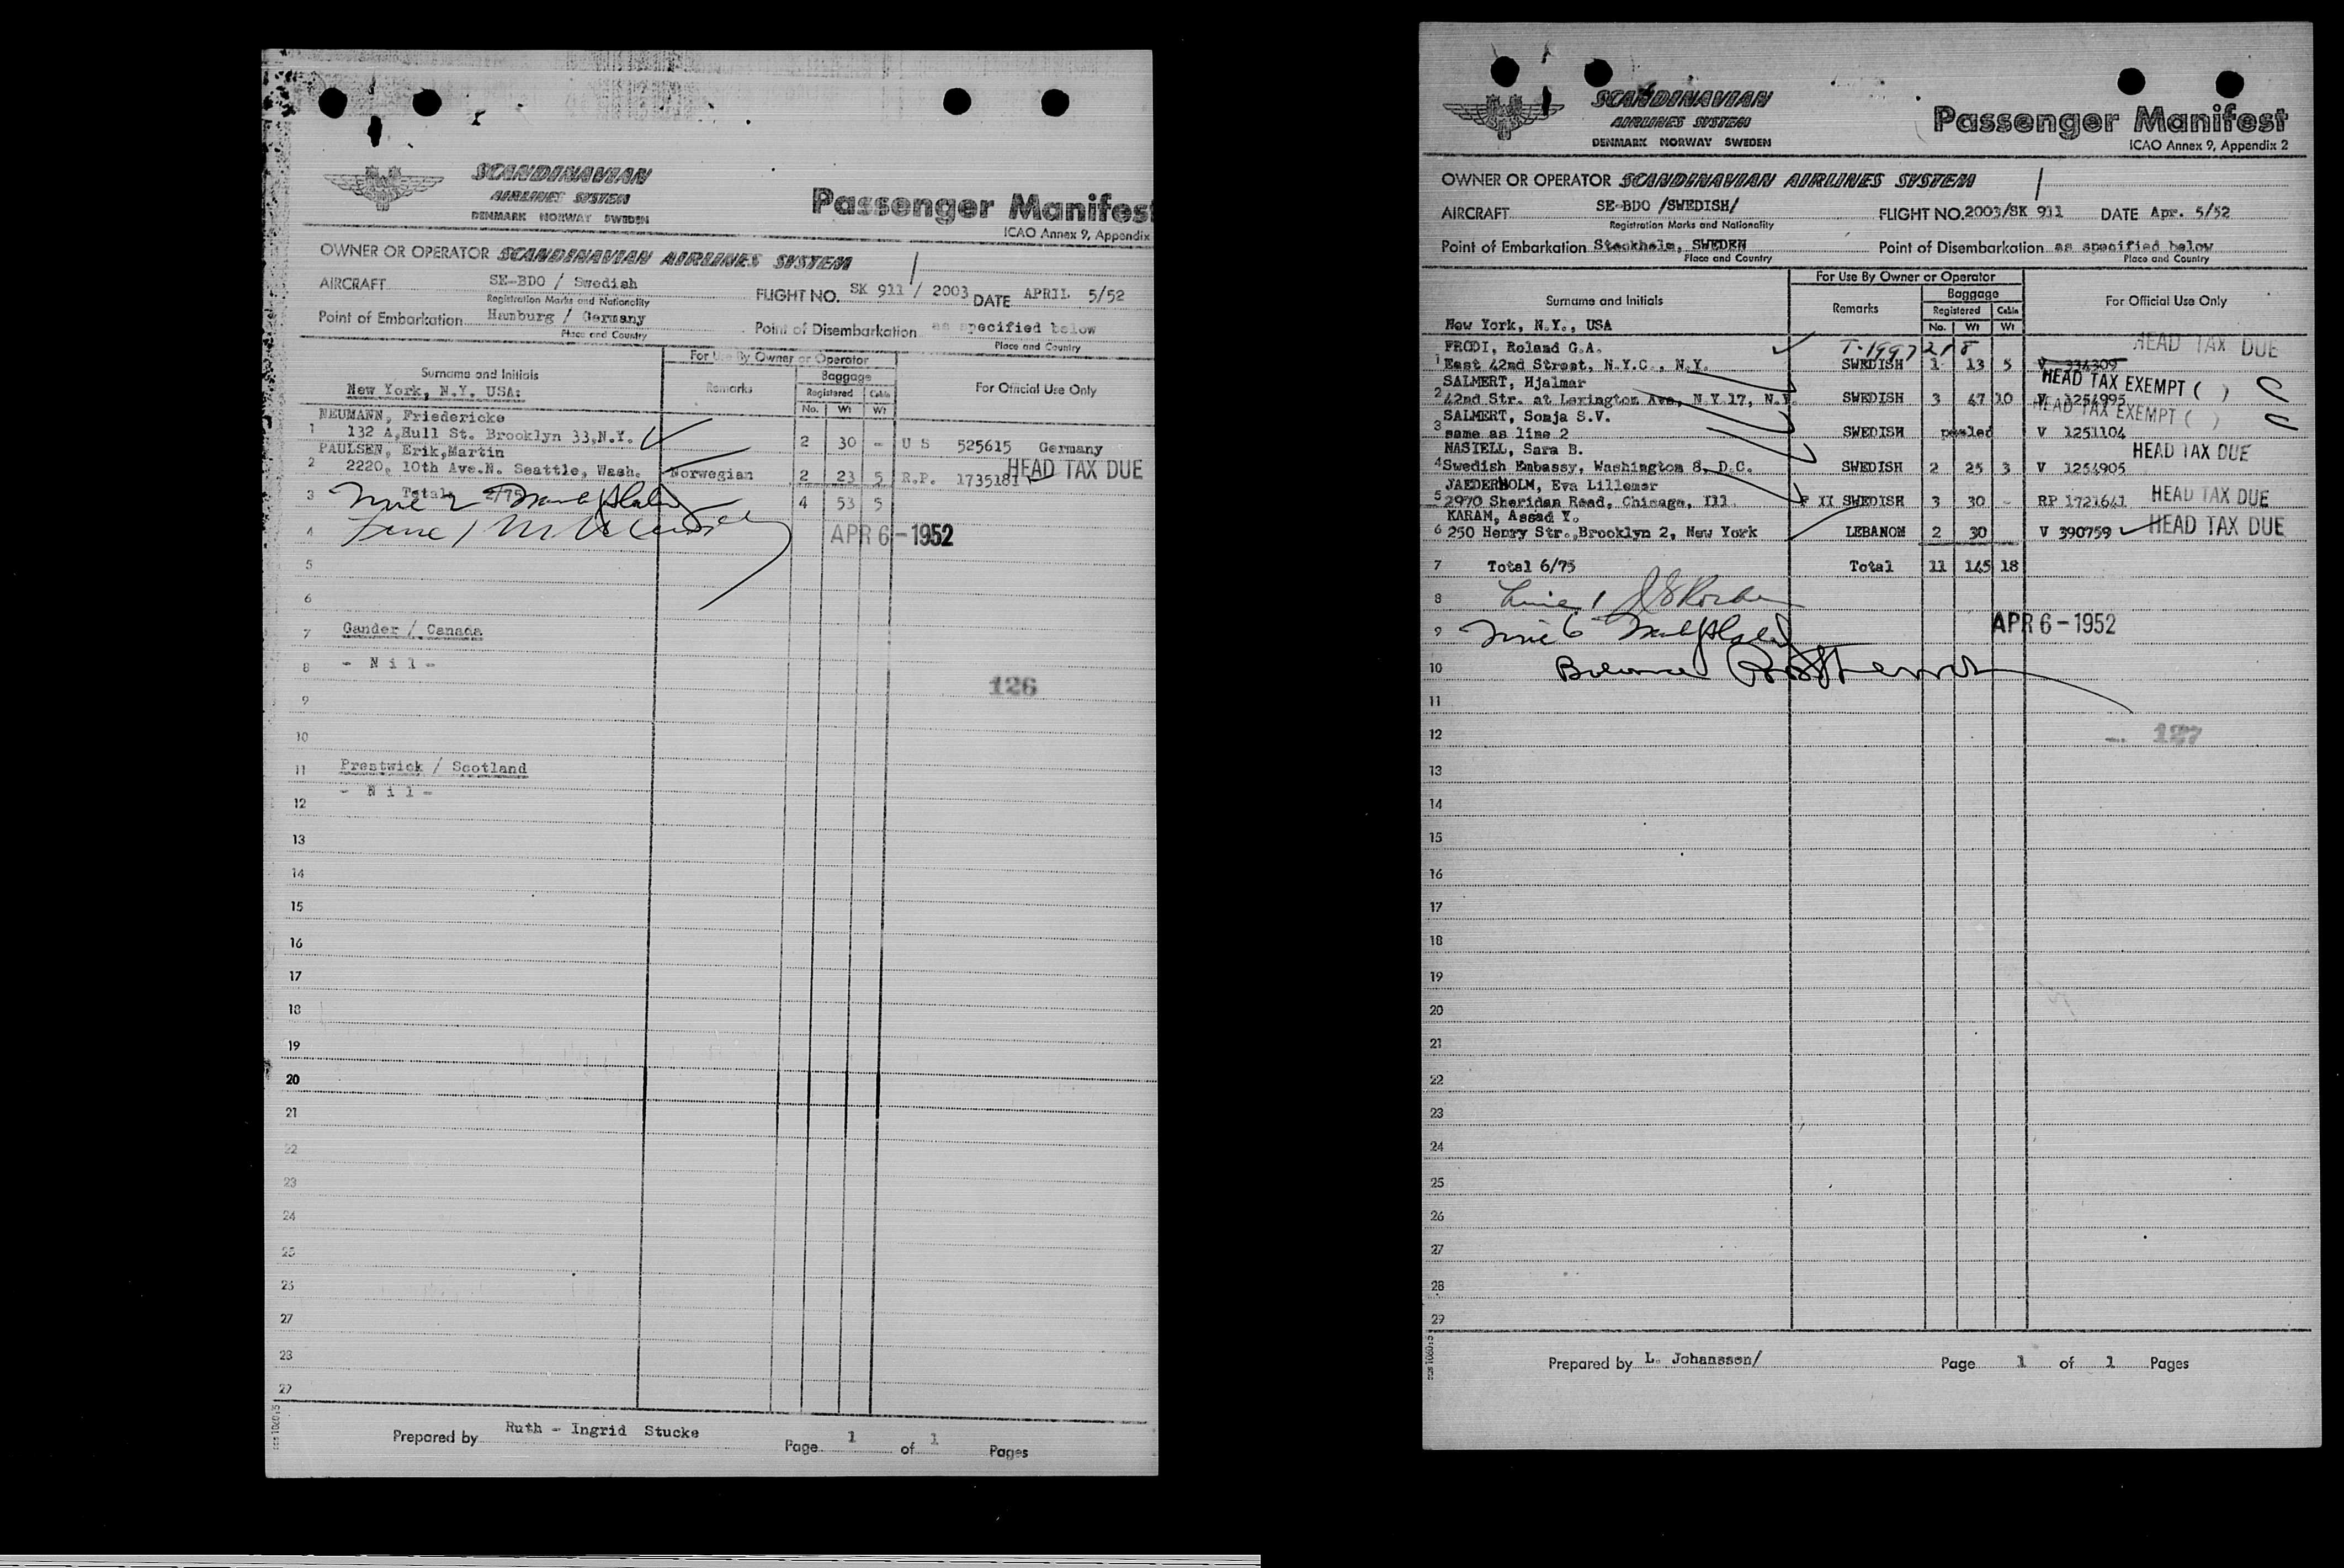 SCANDINAVIAN
AIRLINES SYSTEM
DENMARK NORWAY SWEDEN
Passenger Manifest
ICAO Annex 9, Appendix
OWNER OR OPERATOR SCANDINAVIAN AIRLINES SYSTEM
AIRCRAFT SE-BDO / Swedish FLIGHT NO. SK 911 / 2003 DATE APRIL 5/52
Registration Marks and Nationality
Point of Embarkation Hamburg / Germany Point of Disembarkation as specified below
Place and Country Place and Country
For Use By Owner or Operator
Surname and Initials Remarks Baggage For Official Use Only
New York, N.Y. USA: Registered Cabin
No. Wt Wt
NEUMANN, Friedericke
1 132 A,Hull St. Brooklyn 33,N.Y. 2 30 - U S 525615 Germany
PAULSEN, Erik,Martin
2 2220, 10th Ave.N. Seattle, Wash. Norwegian 2 23 5 R.P. 1735181 HEAD TAX DUE
3 Total: 2/75 4 53 5
Line 2
4 Line 1
APR 6-1952
5
6
7 Gander / Canada
8 - N i l -
126
9
10
11 Prestwick / Scotland
12 - N i l -
13
14
15
16
17
18
19
20
21
22
23
24
25
26
27
28
29
Prepared by Ruth - Ingrid Stucke Page 1 of 1 Pages
SCANDINAVIAN
AIRLINES SYSTEM
DENMARK NORWAY SWEDEN
Passenger Manifest
ICAO Annex 9, Appendix 2
OWNER OR OPERATOR SCANDINAVIAN AIRLINES SYSTEM
AIRCRAFT SE-BDO /SWEDISH/ FLIGHT NO. 2003/SK 911 DATE Apr. 5/52
Registration Marks and Nationality
Point of Embarkation Stockholm, SWEDEN Point of Disembarkation as specified below
Place and Country Place and Country
For Use By Owner or Operator
Surname and Initials Remarks Baggage For Official Use Only
Registered Cabin
New York, N.Y., USA No. Wt Wt
FRODI, Roland G.A. T-1997218 HEAD TAX DUE
1 East 42nd Street, N.Y.C., N.Y. SWEDISH 1 13 5 V 334309
SALMERT, Hjalmar HEAD TAX EXEMPT ( )
2 42nd Str. at Lexington Ave, N.Y.17, N.Y. SWEDISH 3 47 10 V 1254995
SALMERT, Sonja S.V. HEAD TAX EXEMPT ( )
3 same as line 2 SWEDISH pooled V 1251104
NASIELL, Sara B. HEAD TAX DUE
4 Swedish Embassy, Washington 8, D.C. SWEDISH 2 25 3 V 1254905
JAEDERHOLM, Eva Lillemor
5 2970 Sheridan Road, Chicago, Ill P II SWEDISH 3 30 - RP 1721641 HEAD TAX DUE
KARAM, Assad Y.
6 250 Henry Str.,Brooklyn 2, New York LEBANON 2 30 V 390759 HEAD TAX DUE
7 Total 6/75 Total 11 145 18
8 Line 1
9 Line 6 APR 6-1952
10 Balance
11
12 127
13
14
15
16
17
18
19
20
21
22
23
24
25
26
27
28
29
Prepared by L. Johansson/ Page 1 of 1 Pages